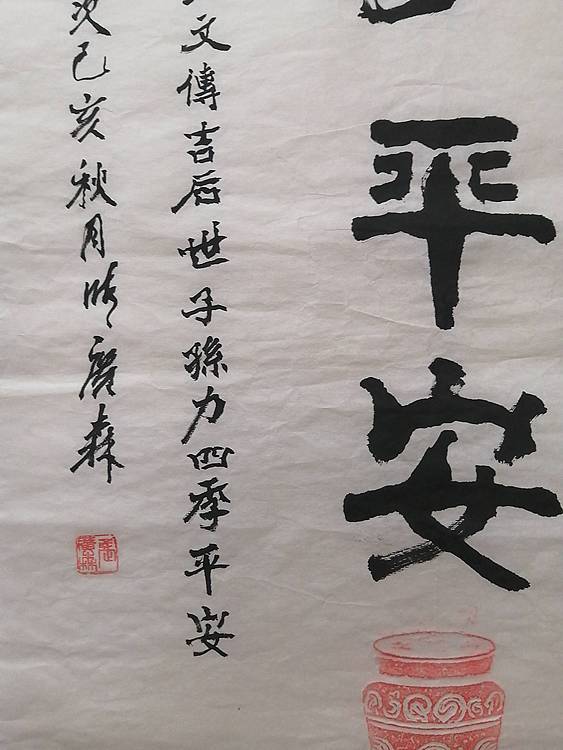 平安
文傳吉后世子孫力四季平安
次己亥秋月廣森